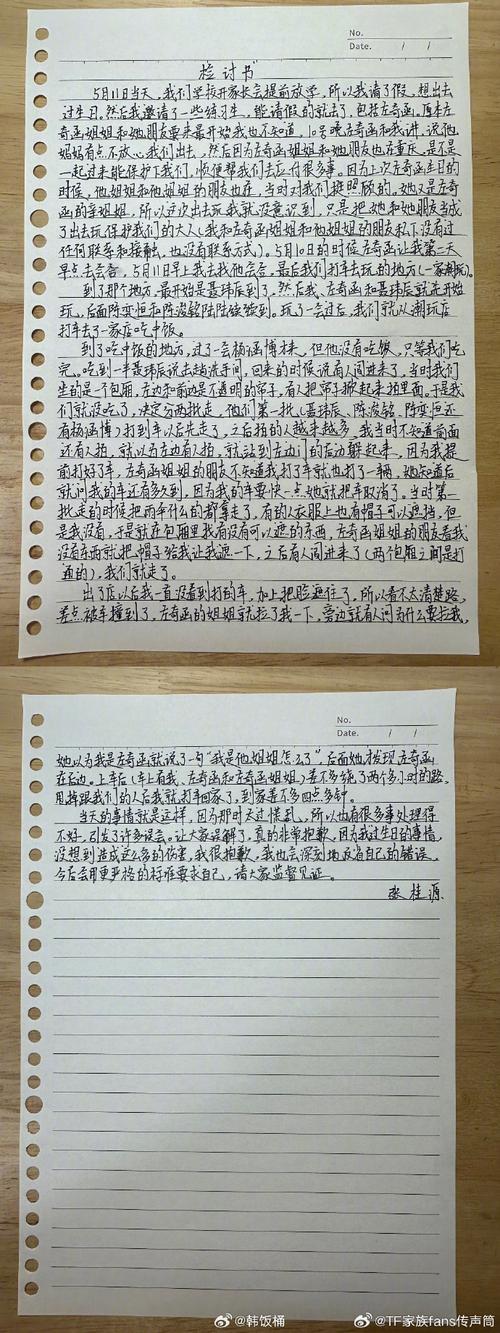 No.
Date. / /
检讨书
5月11日当天，我们学校开家长会提前放学，所以我请了假，想出去
过生日。然后我邀请了一些练习生，能请假的就去了，包括左奇函。原本左
奇函姐姐和她朋友要来最开始我也不知道，10号晚左奇函和我讲，说他
妈妈有点不放心我们出去，然后因为左奇函姐姐和她朋友也在重庆，是不是
一起过来能保护下我们，顺便帮我们去应付很多事，因为上次左奇函生日的
时候，他姐姐和他姐姐的朋友也在，当时对我们挺照顾的，她又是左奇
函的亲姐姐，所以这次出去玩我就没意识到，只是把她和她朋友当成
了出去玩保护我们的大人（我和左奇函姐姐和他姐姐的朋友私下没有过
任何联系和接触，也没有联系方式）。5月10日的时候左奇函让我第二天
早点去会合，5月11日早上我去找他会合，最后我们打车去玩的地方（一家潮玩）。
到了那个地方，最开始是聂玮辰到了，然后我、左奇函和聂玮辰就先开始
玩，后面陈奕恒和陈浚铭陆陆续续到。玩了一会过后，我们就从潮玩店
打车去了一家店吃中饭。
到了吃中饭的地方，过了一会杨涵博才来，但他没有吃饭，只等我们吃
完。吃到一半聂玮辰说出去趟洗手间，回来的时候说有人闯进来了，当时我们
坐的是个包厢，左边和前边是不透明的帘子，有人把帘子掀起来拍里面。于是我
们就没吃了，决定分两批走，他们第一批（聂玮辰、陈浚铭、陈奕恒还
有杨涵博）打到车以后先走了，之后拍的人越来越多，我当时不知道前面
还有人拍，就以为左边有人拍，就站到左边门的后边躲起来，因为我提
前打好了车，左奇函姐姐的朋友不知道我打了车就也打了一辆，她知道后
就问我的车还有多久到，因为我的车要快一点她就把车取消了，当时第一
批走的时候把雨伞什么的都拿走了，有的人衣服上也有帽子可以遮挡，但
是我没有，于是就在包厢里找有没有可以遮的东西，左奇函姐姐的朋友看我
没有东西就把帽子给我让我遮一下，之后有人闯进来了（两个包厢之间是打
通的），我们就走了。
出了店以后我一直没看到打的车，加上把脸遮住了，所以看不太清楚路，
差点被车撞到了，左奇函的姐姐就拉了我一下，旁边就有人问为什么要拉我，
No.
Date. / /
她以为我是左奇函就说了一句“我是他姐姐怎么了”，后面她才发现左奇函
在后边。上车后（车上有我、左奇函和左奇函姐姐）差不多绕了两个多小时的路，
甩掉跟我们的人后我就打车回家了，到家差不多四点多钟。
当天的事情就是这样，因为那时太慌乱，所以也有很多事处理得
不好，引发了许多误会。让大家误解了，真的非常抱歉，因为我过生日的事情，
没想到造成这么多的伤害，我很抱歉，我也会深刻地反省自己的错误，
今后会用更严格的标准要求自己，请大家监督见证。
张桂源
@韩饭桶 @TF家族fans传声筒